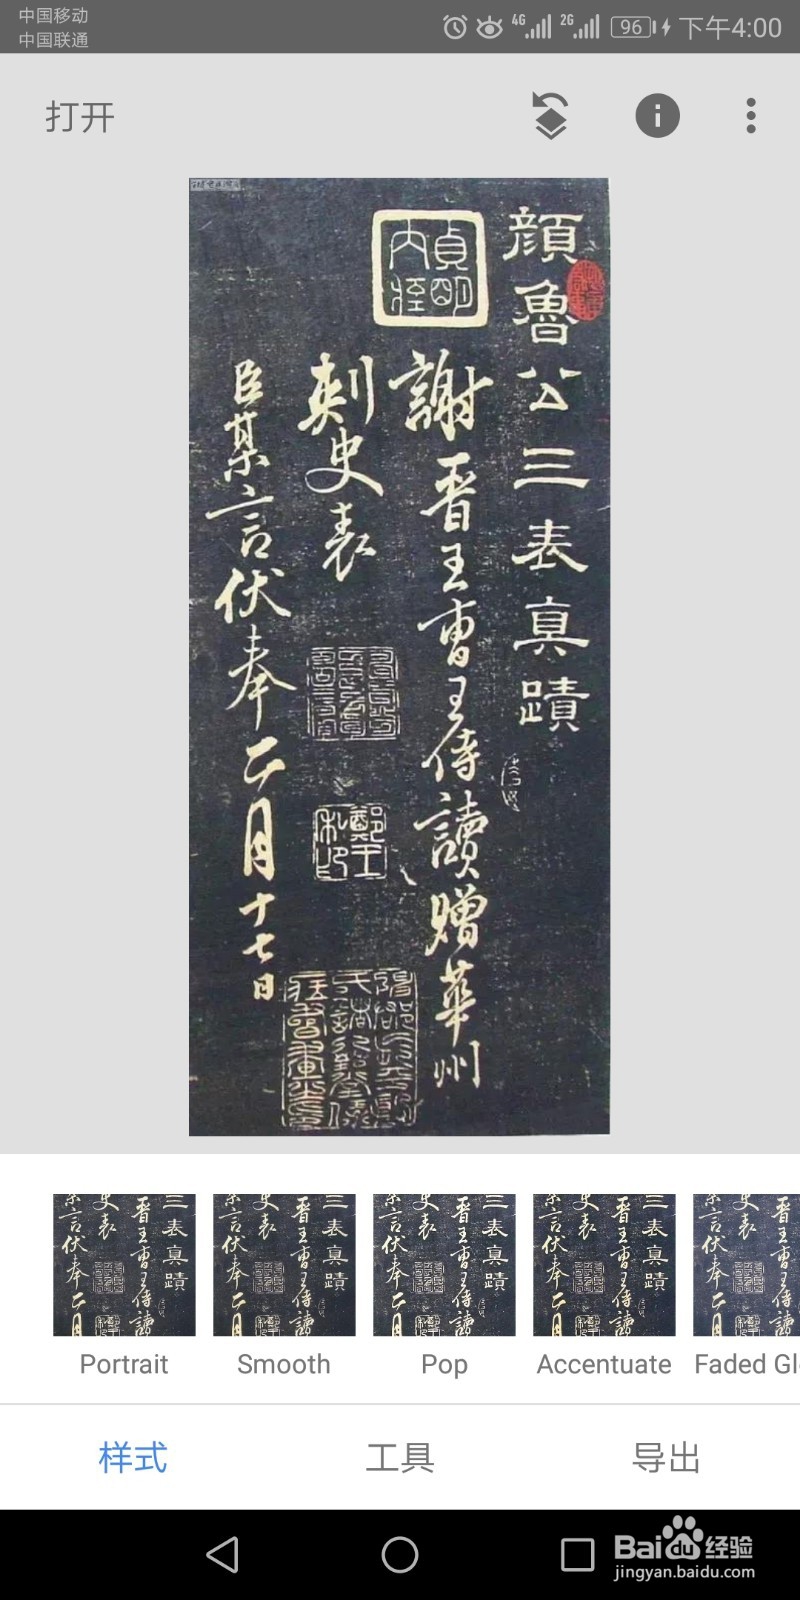 中国移动
中国联通
4G
2G
96
下午4:00
打开
顔魯公三表真蹟
貞明
内
謝晉王曹王侍讀贈華州
刺史表
鄭王
臣某言伏奉二月十七日
Portrait
Smooth
Pop
Accentuate
Faded Gl
样式
工具
导出
Baidu经验
jingyan.baidu.com